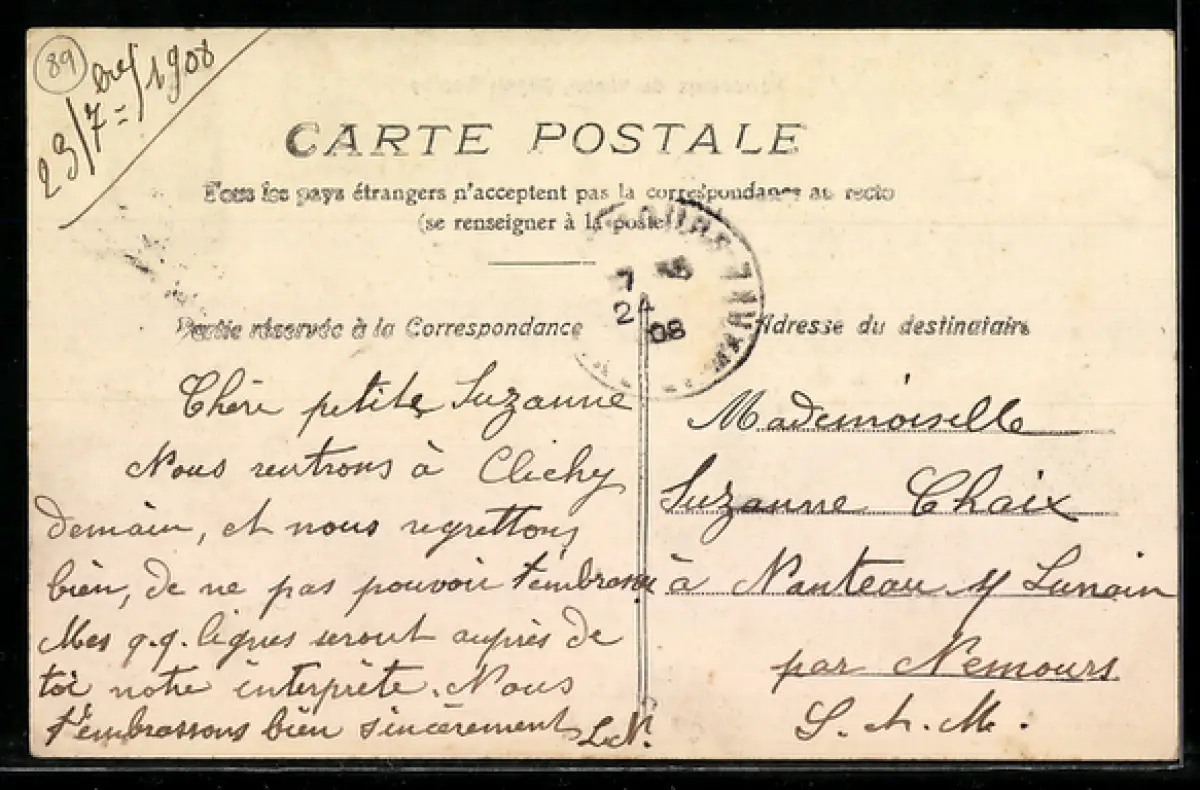 89
23/7bre/1908
CARTE POSTALE
Tous les pays étrangers n'acceptent pas la correspondance au recto
(se renseigner à la poste)
7
24
08
Partie réservée à la Correspondance
Adresse du destinataire
Chère petite Suzanne
Nous rentrons à Clichy
demain, et nous regrettons
bien, de ne pas pouvoir t'embrasser
Mes q.q. lignes seront auprès de
toi notre interprète. Nous
t'embrassons bien sincèrement L.N.
Mademoiselle
Suzanne Chaix
à Nanteau s/ Lunain
par Nemours
S. & M.